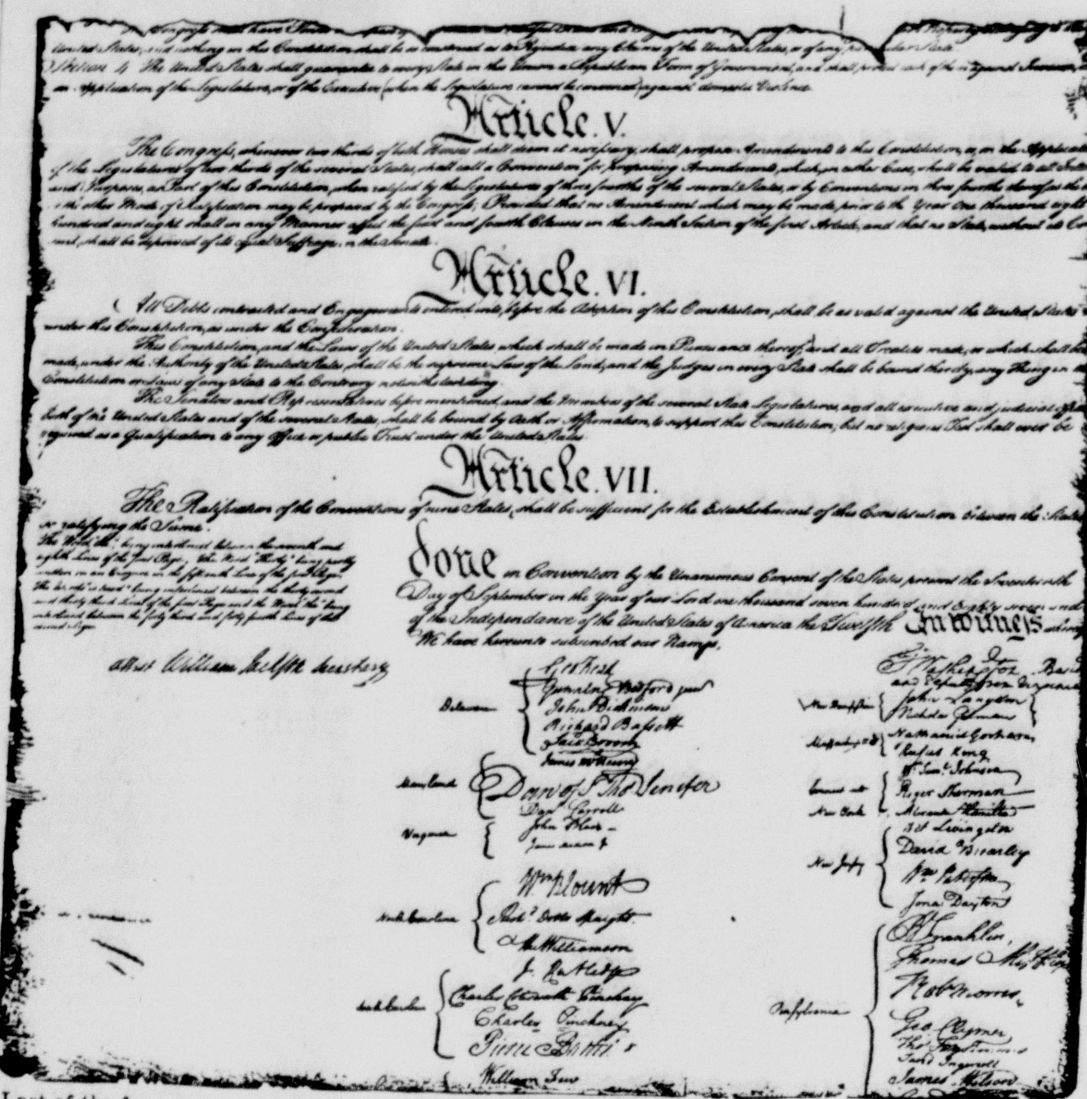 United States, and nothing in this Constitution shall be so construed as to Prejudice any Claims of the United States, or of any particular State.
Section 4. The United States shall guarantee to every State in this Union a Republican Form of Government, and shall protect each of them against Invasion;
on Application of the Legislature, or of the Executive (when the Legislature cannot be convened) against domestic Violence.
Article. V.
The Congress, whenever two thirds of both Houses shall deem it necessary, shall propose Amendments to this Constitution, or, on the
of the Legislatures of two thirds of the several States, shall call a Convention for proposing Amendments, which, in either Case, shall be valid to all
and Purposes, as Part of this Constitution, when ratified by the Legislatures of three fourths of the several States, or by Conventions in three fourths thereof, as the
other Mode of Ratification may be proposed by the Congress; Provided that no Amendment which may be made prior to the Year One thousand eight
hundred and eight shall in any Manner affect the first and fourth Clauses in the Ninth Section of the first Article; and that no State, without its
shall be deprived of its equal Suffrage in the Senate.
Article. VI.
All Debts contracted and Engagements entered into, before the Adoption of this Constitution, shall be as valid against the United States
under this Constitution, as under the Confederation.
This Constitution, and the Laws of the United States which shall be made in Pursuance thereof; and all Treaties made, or which shall be
made, under the Authority of the United States, shall be the supreme Law of the Land; and the Judges in every State shall be bound thereby, any Thing in the
Constitution or Laws of any State to the Contrary notwithstanding.
The Senators and Representatives before mentioned, and the Members of the several State Legislatures, and all executive and judicial
both of the United States and of the several States, shall be bound by Oath or Affirmation, to support this Constitution; but no religious Test shall ever be
required as a Qualification to any Office or public Trust under the United States.
Article. VII.
The Ratification of the Conventions of nine States, shall be sufficient for the Establishment of this Constitution between the States
so ratifying the Same.
The Word "the", being interlined between the seventh and
eighth Lines of the first Page, The Word "Thirty" being partly
written on an Erazure in the fifteenth Line of the first Page,
The Words "is tried" being interlined between the thirty second
and thirty third Lines of the first Page and the Word "the" being
interlined between the forty third and forty fourth Lines of the
second Page.
done in Convention by the Unanimous Consent of the States present the Seventeenth
Day of September in the Year of our Lord one thousand seven hundred and Eighty seven and
of the Independance of the United States of America the Twelfth In Witness whereof
We have hereunto subscribed our Names,
attest William Jackson Secretary
Delaware
Geo: Read
Gunning Bedford jun
John Dickinson
Richard Bassett
Jaco: Broom
Maryland
James McHenry
Dan of St Thos Jenifer
Danl Carroll
Virginia
John Blair
North Carolina
Wm Blount
Richd Dobbs Spaight.
Hu Williamson
South Carolina
J. Rutledge
Charles Cotesworth Pinckney
Charles Pinckney
Pierce Butler
William Few
Go Washington
and deputy from Virginia
New Hampshire
John Langdon
Nicholas Gilman
Massachusetts
Nathaniel Gorham
Rufus King
Connecticut
Wm Saml Johnson
Roger Sherman
New York
Alexander Hamilton
New Jersey
Wil Livingston
David Brearley
Wm Paterson
Jona Dayton
Pensylvania
B Franklin
Thomas Mifflin
Robt Morris
Geo Clymer
Thos FitzSimons
Jared Ingersoll
James Wilson